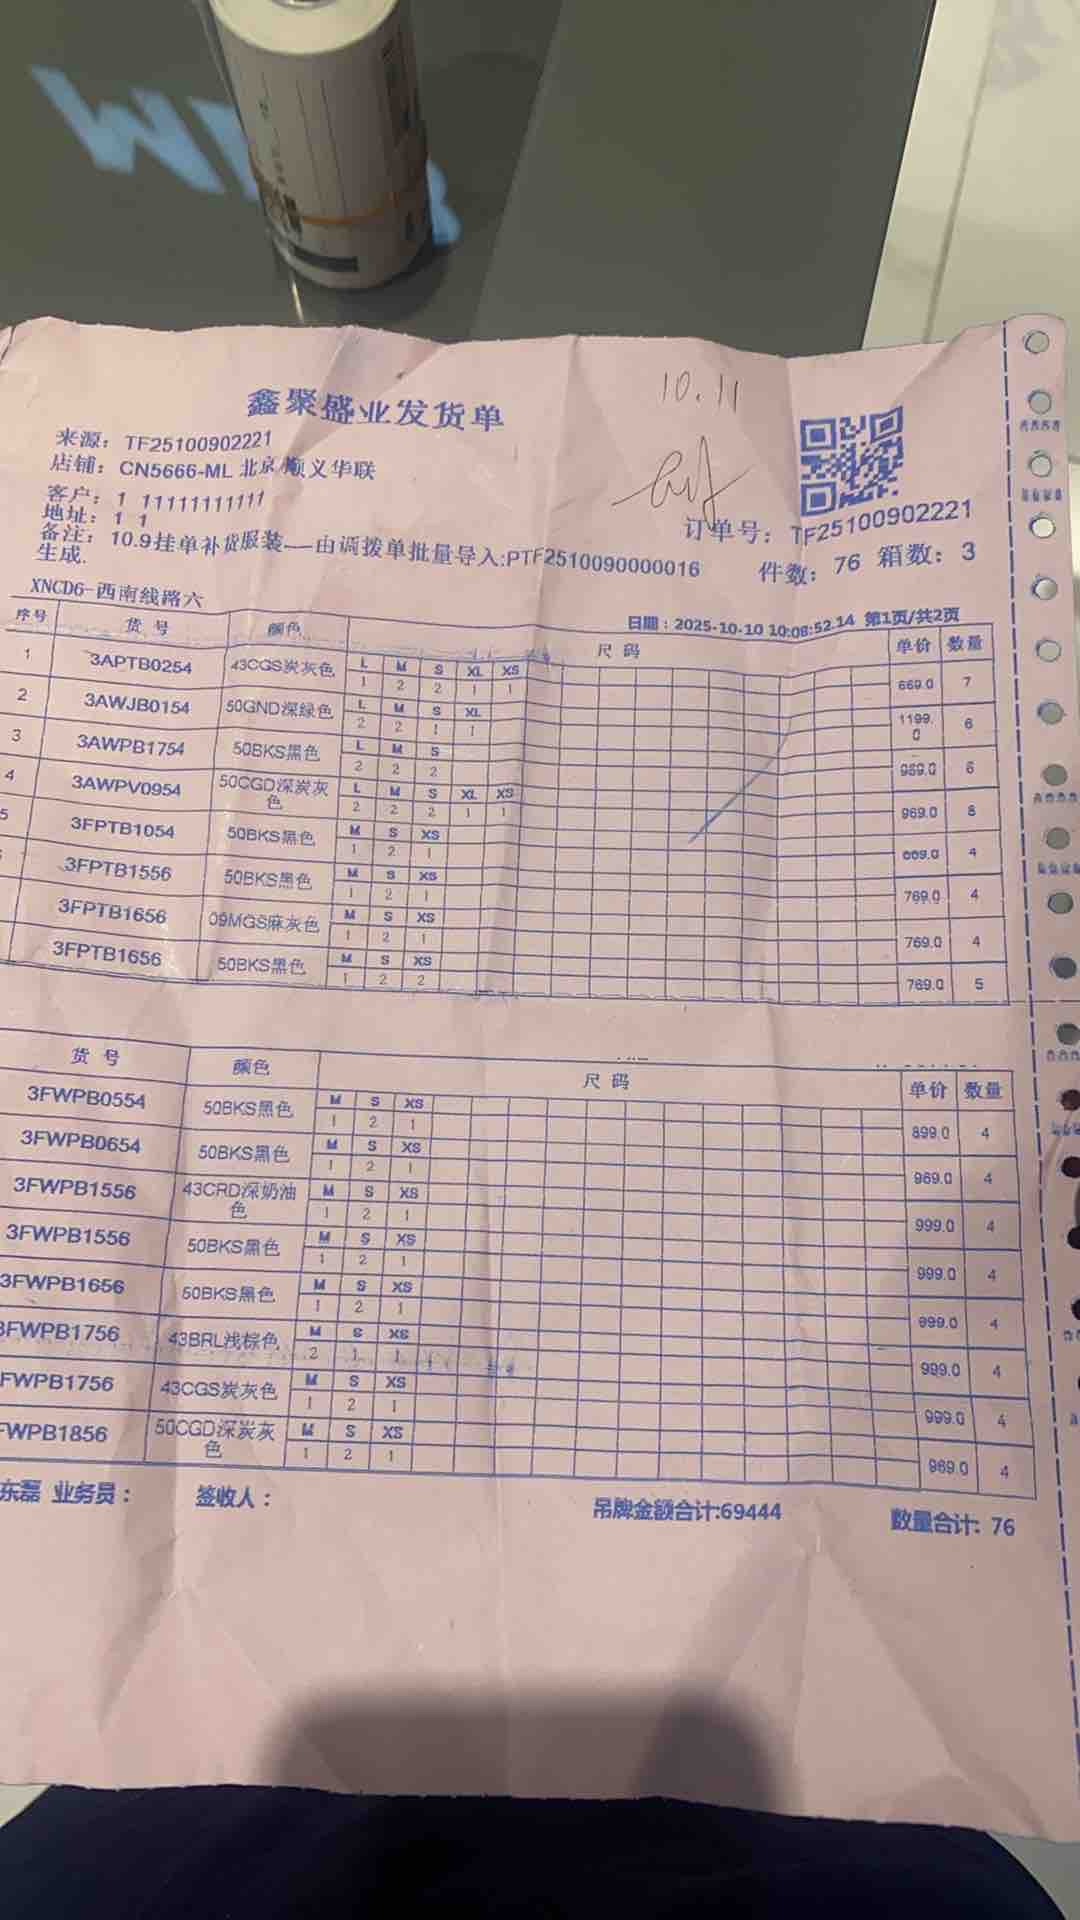 鑫聚盛业发货单
10.11
来源：TF25100902221
店铺：CN5666-ML 北京顺义华联
客户：1 11111111111
地址：1 1
备注：10.9挂单补货服装—由调拨单批量导入:PTF2510090000016
生成.
订单号：TF25100902221
件数：76 箱数：3
XNCD6-西南线路六
日期：2025-10-10 10:08:52.14 第1页/共2页
序号 货号 颜色 尺码 单价 数量
1 3APTB0254 43CGS炭灰色 L M S XL XS 669.0 7
1 2 2 1 1
2 3AWJB0154 50GND深绿色 L M S XL 1199.0 6
2 2 1 1
3 3AWPB1754 50BKS黑色 L M S 969.0 6
2 2 2
4 3AWPV0954 50CGD深炭灰色 L M S XL XS 969.0 8
2 2 2 1 1
5 3FPTB1054 50BKS黑色 M S XS 669.0 4
1 2 1
3FPTB1556 50BKS黑色 M S XS 769.0 4
1 2 1
3FPTB1656 09MGS麻灰色 M S XS 769.0 4
1 2 1
3FPTB1656 50BKS黑色 M S XS 769.0 5
1 2 2
货号 颜色 尺码 单价 数量
3FWPB0554 50BKS黑色 M S XS 899.0 4
1 2 1
3FWPB0654 50BKS黑色 M S XS 969.0 4
1 2 1
3FWPB1556 43CRD深奶油色 M S XS 999.0 4
1 2 1
3FWPB1556 50BKS黑色 M S XS 999.0 4
1 2 1
3FWPB1656 50BKS黑色 M S XS 999.0 4
1 2 1
3FWPB1756 43BRL浅棕色 M S XS 999.0 4
2 1 1
FWPB1756 43CGS炭灰色 M S XS 999.0 4
1 2 1
WPB1856 50CGD深炭灰色 M S XS 969.0 4
1 2 1
东磊 业务员： 签收人： 吊牌金额合计:69444 数量合计: 76